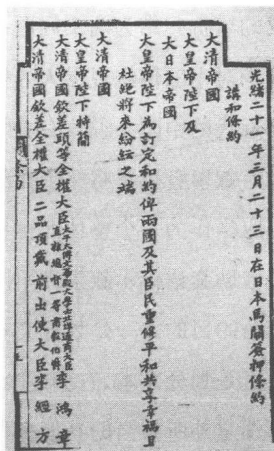 光緒二十一年三月二十三日在日本馬關簽押條約
講和條約
大清帝國
大皇帝陛下及
大日本帝國
大皇帝陛下為訂定和約俾兩國及其臣民重修平和共享幸福且
杜絕將來紛紜之端
大清帝國
大皇帝陛下特簡
大清帝國欽差頭等全權大臣太子太傅文華殿大學士北洋通商大臣直隸總督一等肅毅伯爵李鴻章
大清帝國欽差全權大臣二品頂戴前出使大臣李經方